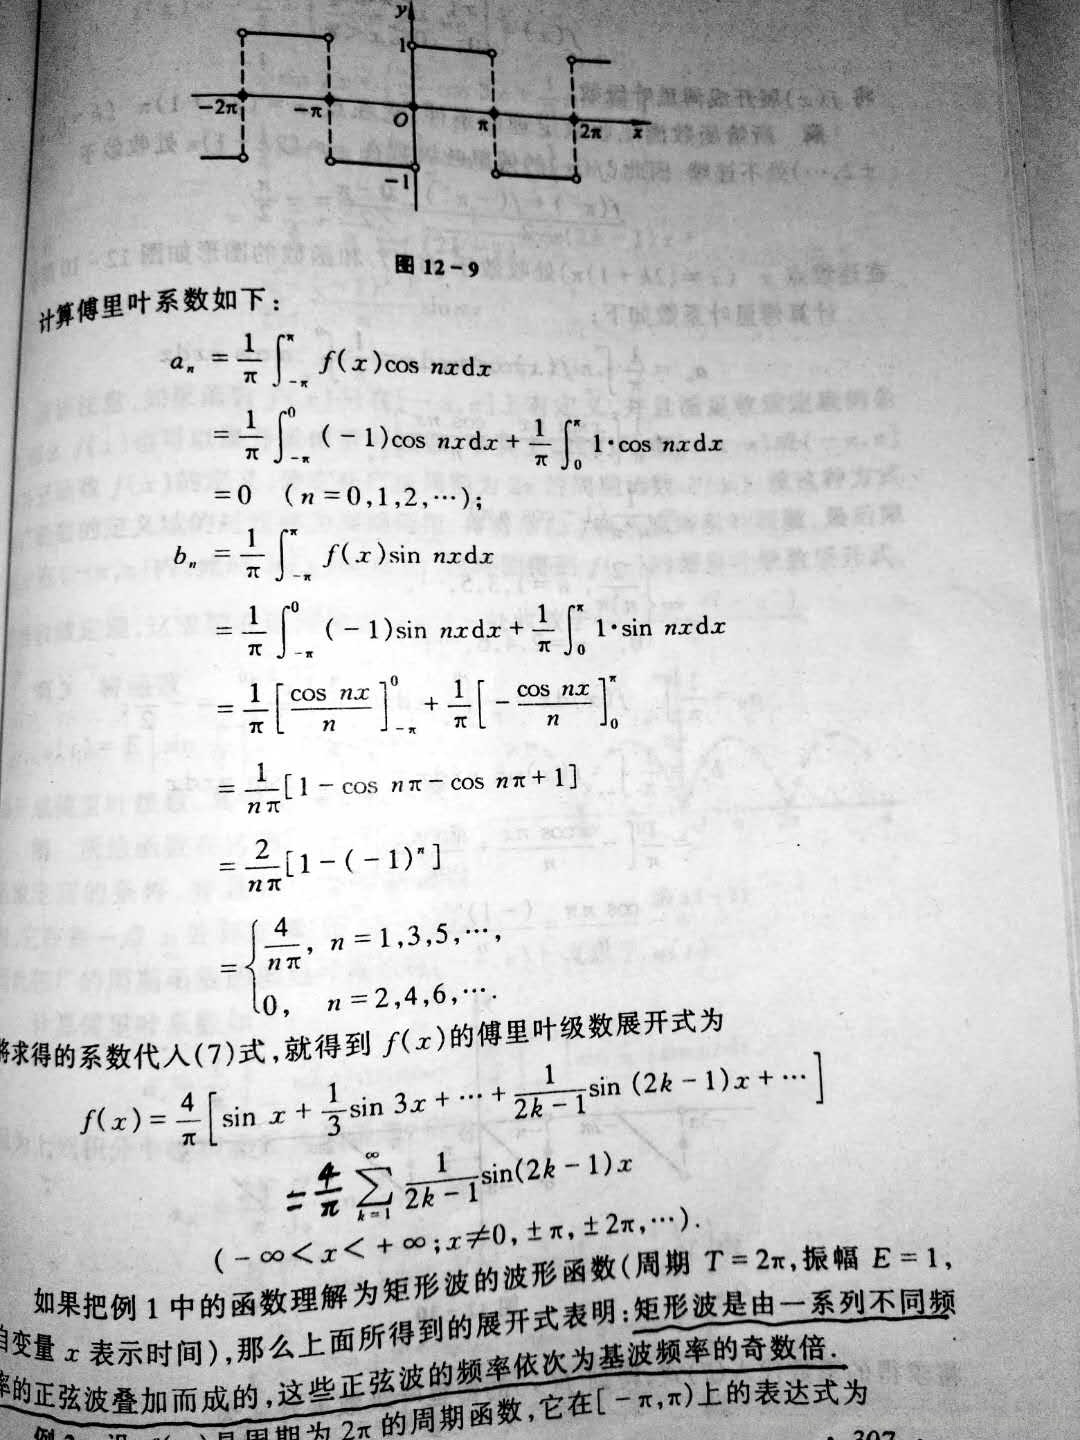 y
1
-2π -π O π 2π x
-1
图 12-9
计算傅里叶系数如下:
aₙ = 1/π ∫_{-π}^{π} f(x)cos nxdx
= 1/π ∫_{-π}^{0} (-1)cos nxdx + 1/π ∫_{0}^{π} 1·cos nxdx
=0 (n=0,1,2,⋯);
bₙ = 1/π ∫_{-π}^{π} f(x)sin nxdx
= 1/π ∫_{-π}^{0} (-1)sin nxdx + 1/π ∫_{0}^{π} 1·sin nxdx
= 1/π [cos nx/n]_{-π}^{0} + 1/π [-cos nx/n]_{0}^{π}
= 1/nπ [1-cos nπ-cos nπ+1]
= 2/nπ [1-(-1)ⁿ]
= { 4/nπ, n=1,3,5,⋯,
0, n=2,4,6,⋯.
将求得的系数代入(7)式,就得到 f(x)的傅里叶级数展开式为
f(x)= 4/π [sin x + 1/3 sin 3x + ⋯ + 1/(2k-1) sin (2k-1)x + ⋯]
= 4/π ∑_{k=1}^{∞} 1/(2k-1) sin(2k-1)x
(-∞<x<+∞;x≠0,±π,±2π,⋯).
如果把例 1 中的函数理解为矩形波的波形函数(周期 T=2π,振幅 E=1,
自变量 x 表示时间),那么上面所得到的展开式表明:矩形波是由一系列不同频
率的正弦波叠加而成的,这些正弦波的频率依次为基波频率的奇数倍.
是周期为 2π 的周期函数,它在[-π,π)上的表达式为
· 307 ·